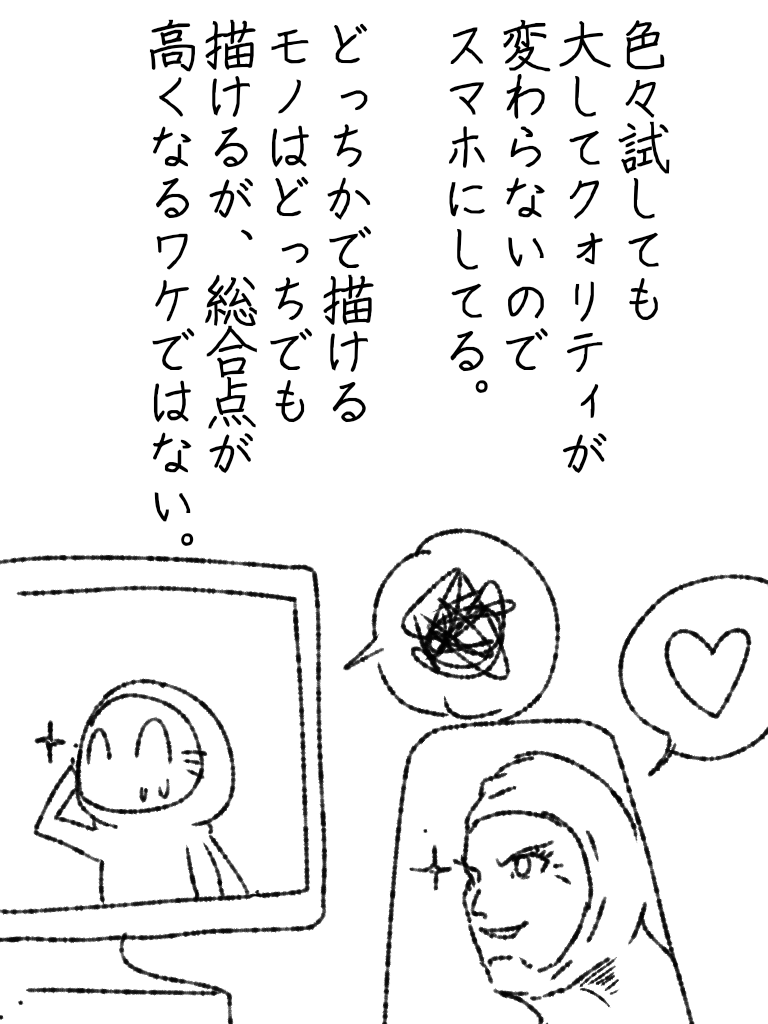 色々試しても
大してクォリティが
変わらないので
スマホにしてる。
どっちかで描ける
モノはどっちでも
描けるが、総合点が
高くなるワケではない。